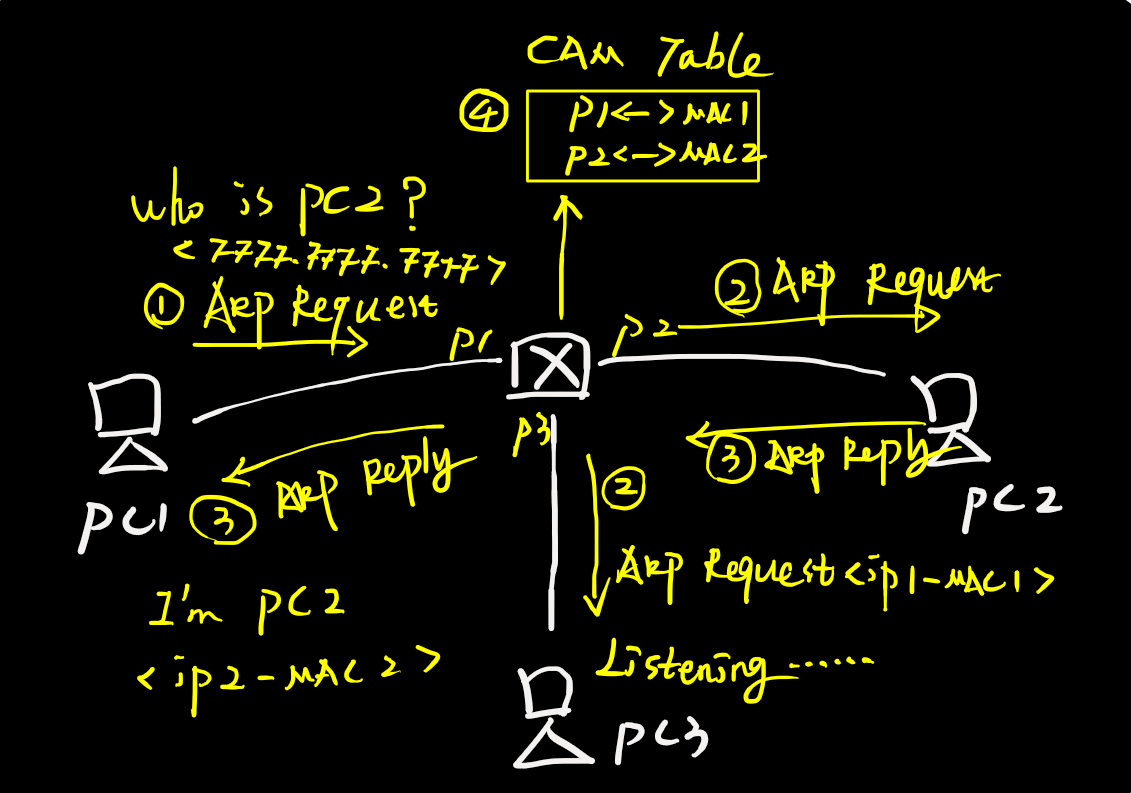 CAM Table
④ P1<->MAC1
P2<->MAC2
who is PC2?
<7777.7777.7777>
① ARP Request
② ARP Request
P1
P2
P3
③ ARP Reply
③ ARP Reply
PC1
PC2
②
ARP Request<ip1-MAC1>
I'm PC2
<ip2-MAC2>
Listening......
PC3